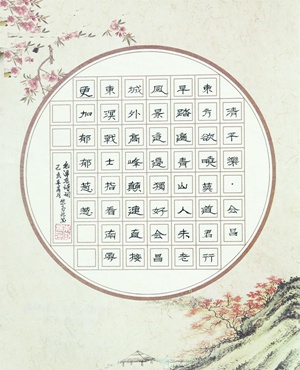 清平樂·会昌
東方欲曉莫道君行
早踏遍青山人未老
風景這邊獨好会昌
城外高峰顛連直接
東溟戰士指看南粵
更加郁郁葱葱
毛澤東诗词
己亥年